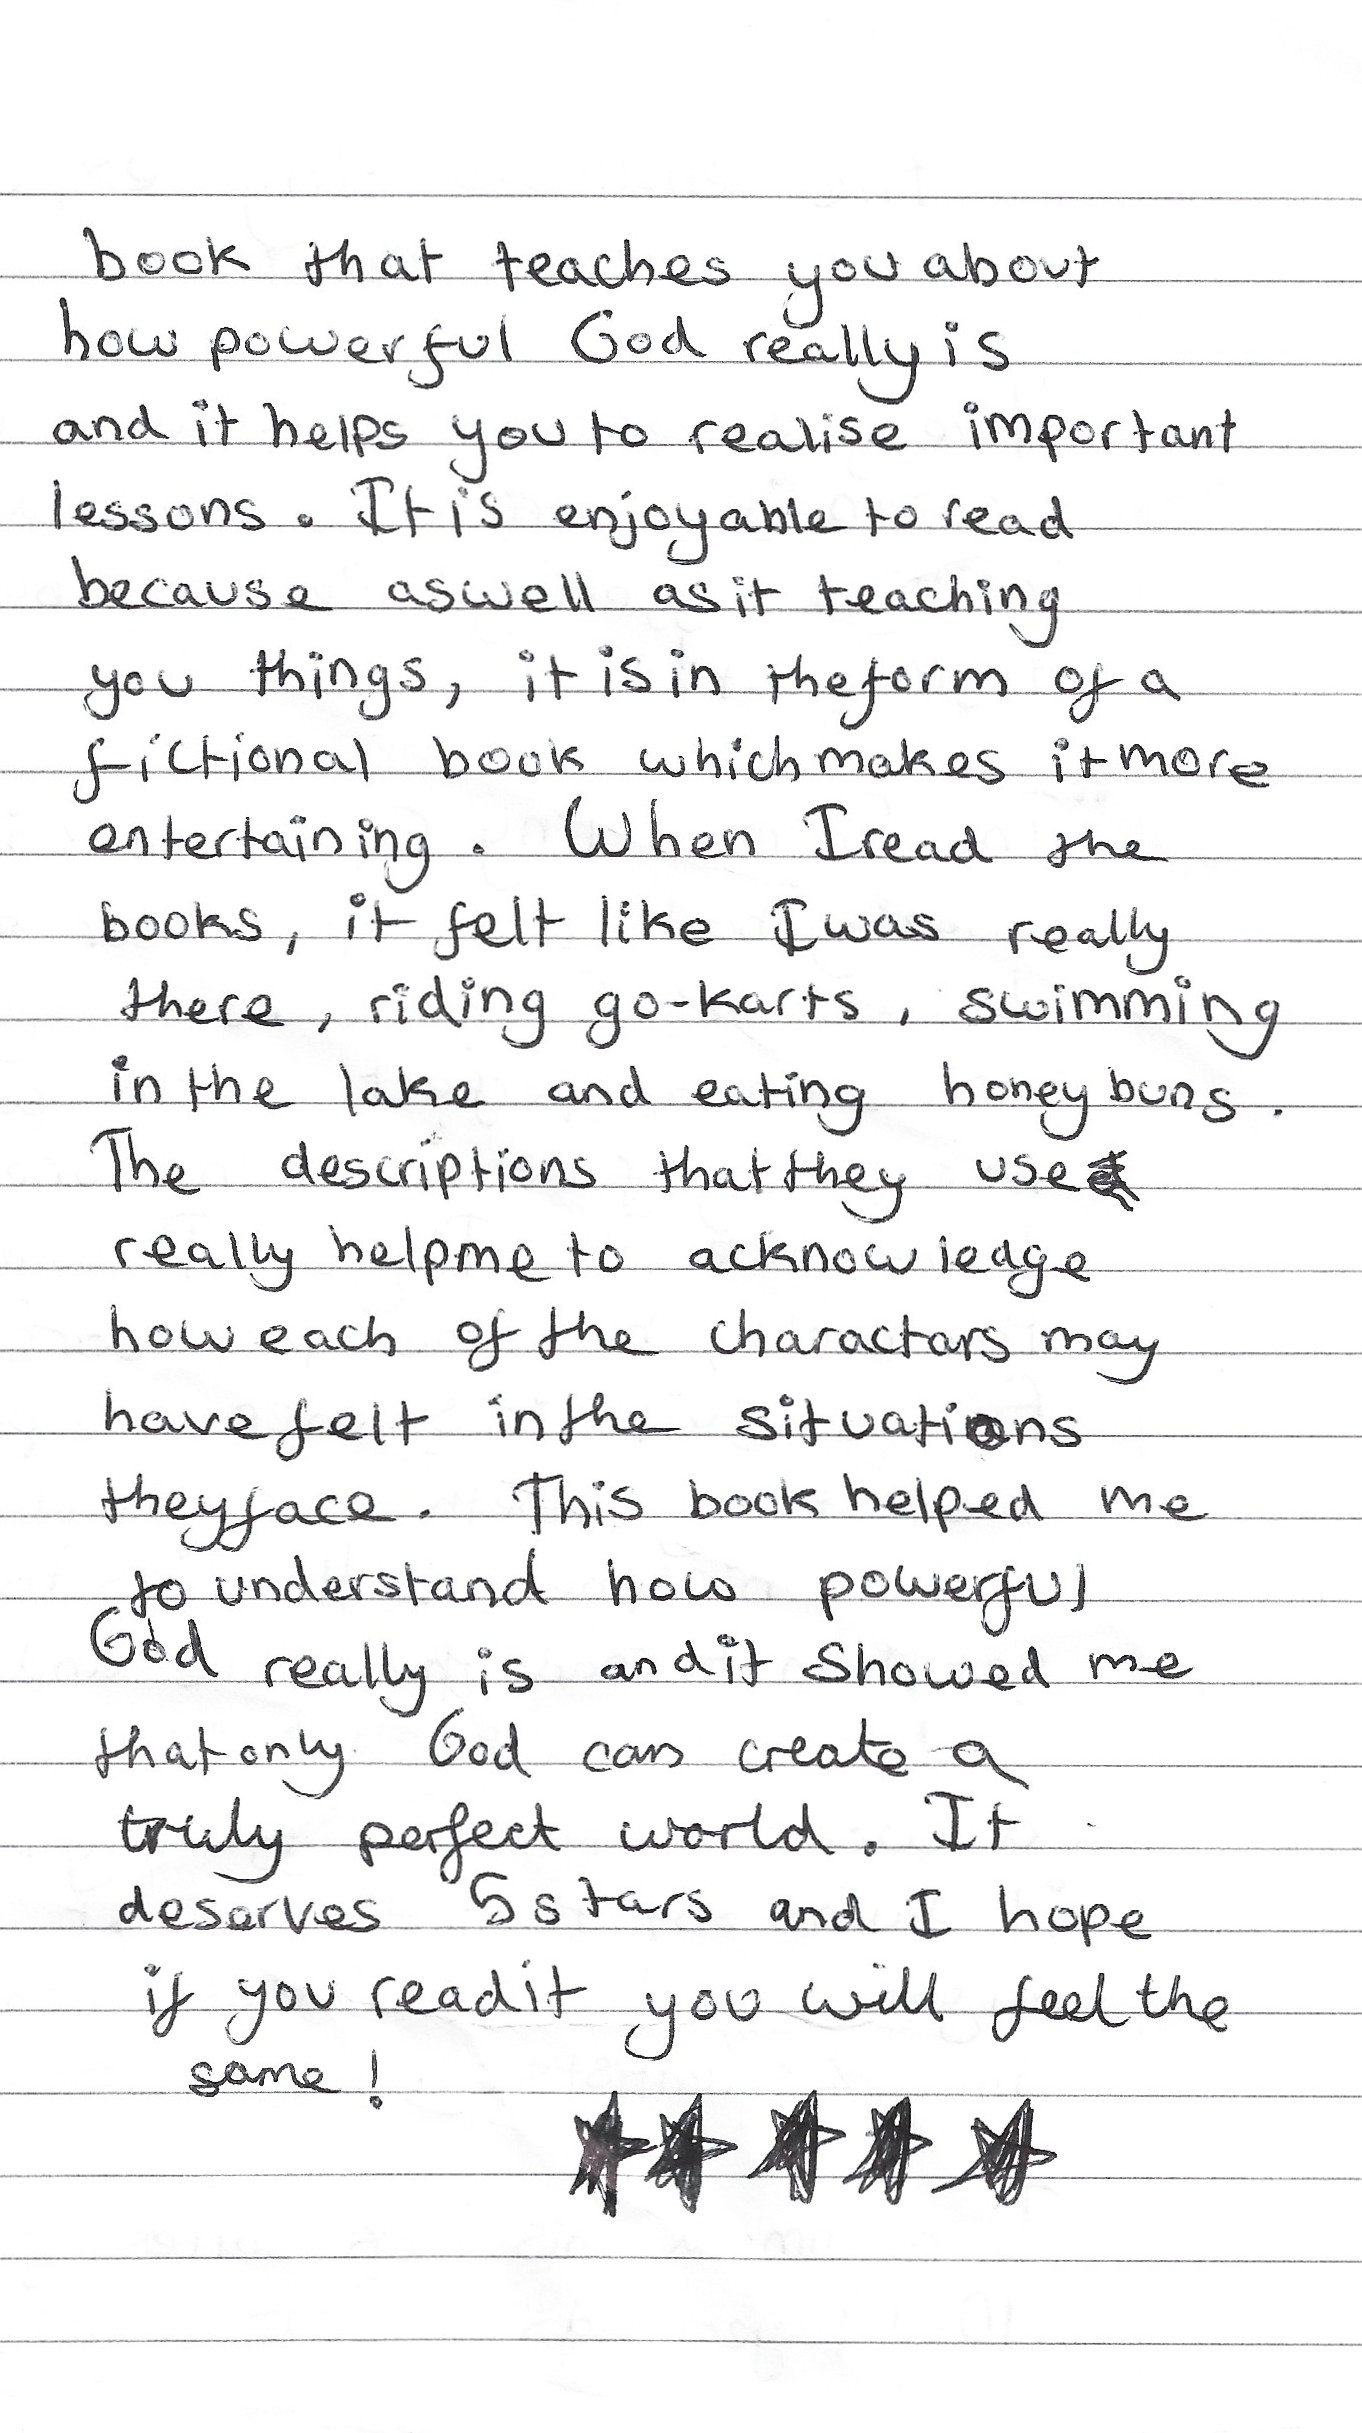 book that teaches you about
how powerful God really is
and it helps you to realise important
lessons. It is enjoyable to read
because aswell as it teaching
you things, it is in the form of a
fictional book which makes it more
entertaining. When I read the
books, it felt like I was really
there, riding go-karts, swimming
in the lake and eating honey buns.
The descriptions that they use
really help me to acknowledge
how each of the charactars may
have felt in the situations
they face. This book helped me
to understand how powerful
God really is and it showed me
that only God can create a
truly perfect world. It
deserves 5 stars and I hope
if you read it you will feel the
same!